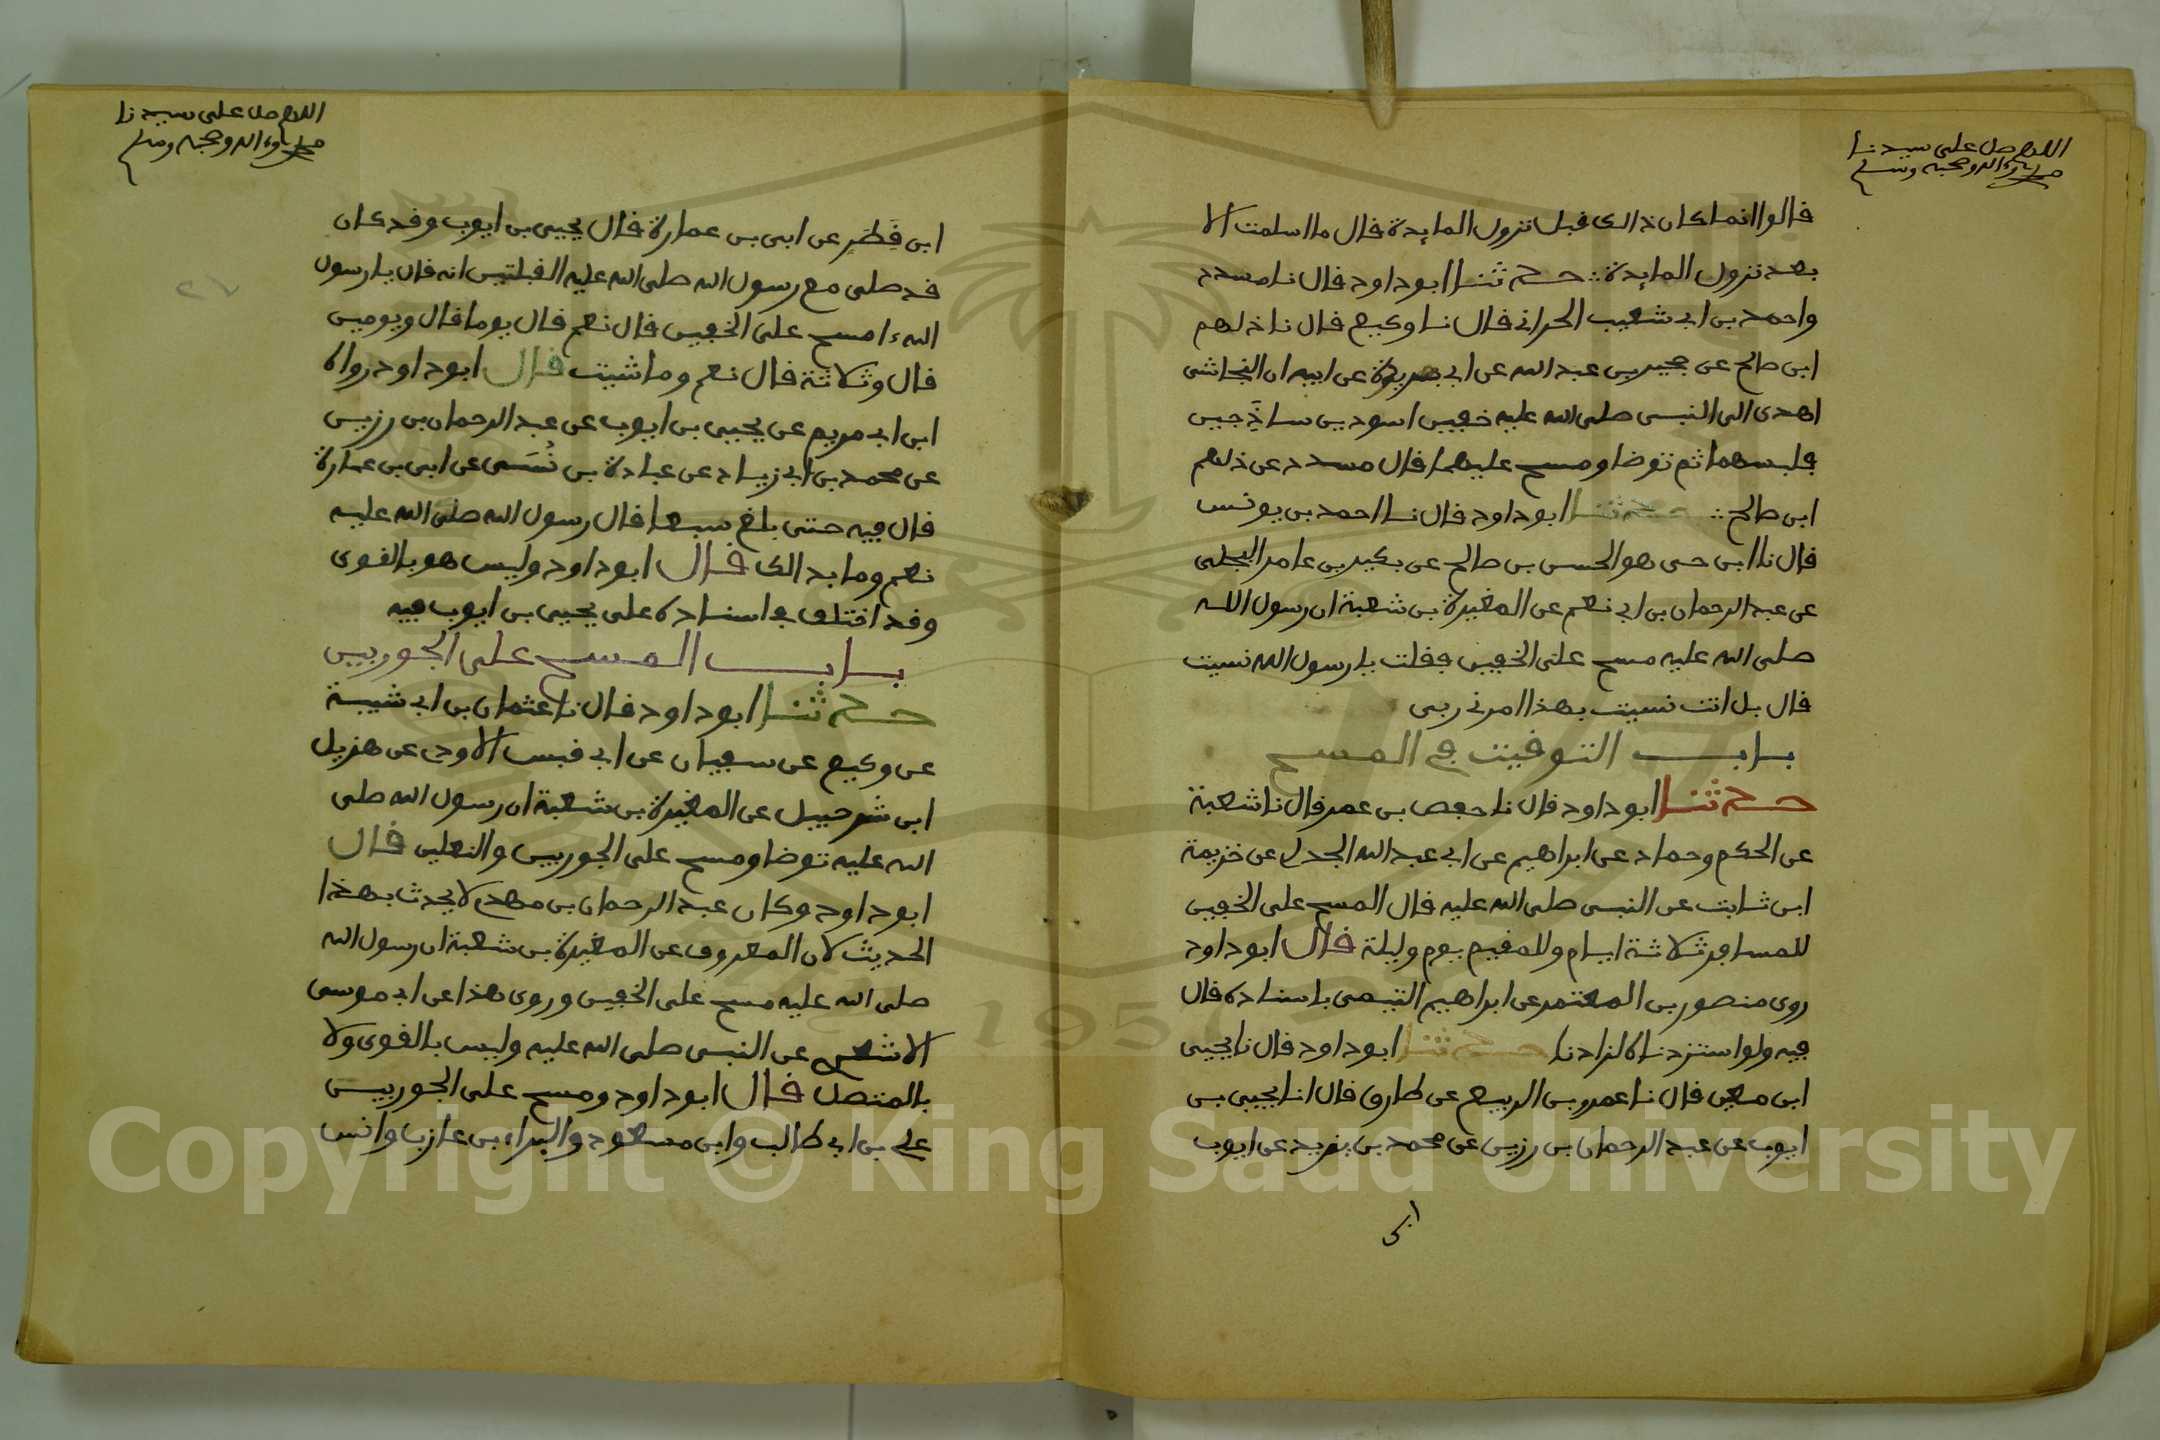 اللهم صل على سيدنا
محمد وءاله وصحبه وسلم
قالوا انما كان ذالك قبل نزول المايدة قال ما اسلمت الا
بعد نزول المايدة حدثنا ابو داود قال نا مسدد
واحمد بن ابي شعيب الحراني قال نا وكيع قال نا دلهم
ابن صالح عن حجير بن عبد الله عن ابي بريدة عن ابيه ان النجاشي
اهدى الى النبي صلى الله عليه خفين اسودين ساذجين
فلبسهما ثم توضا ومسح عليهما قال مسدد عن دلهم
ابن صالح حدثنا ابو داود قال نا احمد بن يونس
قال نا ابن حي هو الحسن بن صالح عن بكير بن عامر البجلي
عن عبد الرحمان بن ابي نعم عن المغيرة بن شعبة ان رسول الله
صلى الله عليه مسح على الخفين فقلت يا رسول الله نسيت
قال بل انت نسيت بهذا امرني ربي
باب التوقيت في المسح
حدثنا ابو داود قال نا حفص بن عمر قال نا شعبة
عن الحكم وحماد عن ابراهيم عن ابي عبد الله الجدلي عن خزيمة
ابن ثابت عن النبي صلى الله عليه قال المسح على الخفين
للمسافر ثلاثة ايام وللمقيم يوم وليلة قال ابو داود
روى منصور بن المعتمر عن ابراهيم التيمي باسناده قال
فيه ولو استزدناه لزادنا حدثنا ابو داود قال نا يحيى
ابن معين قال نا عمرو بن الربيع عن طارق قال انا يحيى بن
ايوب عن عبد الرحمان بن رزين عن محمد بن يزيد عن ايوب
ابن
اللهم صل على سيدنا
محمد وءاله وصحبه وسلم
ابن قَطَن عن ابي بن عمارة قال يحيى بن ايوب وقد كان
قد صلى مع رسول الله صلى الله عليه القبلتين انه قال يا رسول
الله ءامسح على الخفين قال نعم قال يوما قال ويومين
قال وثلاثة قال نعم وما شيت قال ابو داود رواه
ابن ابي مريم عن يحيى بن ايوب عن عبد الرحمان بن رزين
عن محمد بن ابي زياد عن عبادة بن نُسَي عن ابي بن عمارة
قال فيه حتى بلغ سبعا قال رسول الله صلى الله عليه
نعم وما بدا لك قال ابو داود وليس هو بالقوي
وقد اختلف في اسناده على يحيى بن ايوب فيه
باب المسح على الجوربين
حدثنا ابو داود قال نا عثمان بن ابي شيبة
عن وكيع عن سفيان عن ابي قيس الاودي عن هزيل
ابن شرحبيل عن المغيرة بن شعبة ان رسول الله صلى
الله عليه توضا ومسح على الجوربين والنعلين قال
ابو داود وكان عبد الرحمان بن مهدي لا يحدث بهذا
الحديث لان المعروف عن المغيرة بن شعبة ان رسول الله
صلى الله عليه مسح على الخفين وروى هذا عن ابي موسى
الاشعري عن النبي صلى الله عليه وليس بالقوي ولا
بالمتصل قال ابو داود ومسح على الجوربين
علي بن ابي طالب وابن مسعود والبراء بن عازب وانس
Copyright © King Saud University
1957